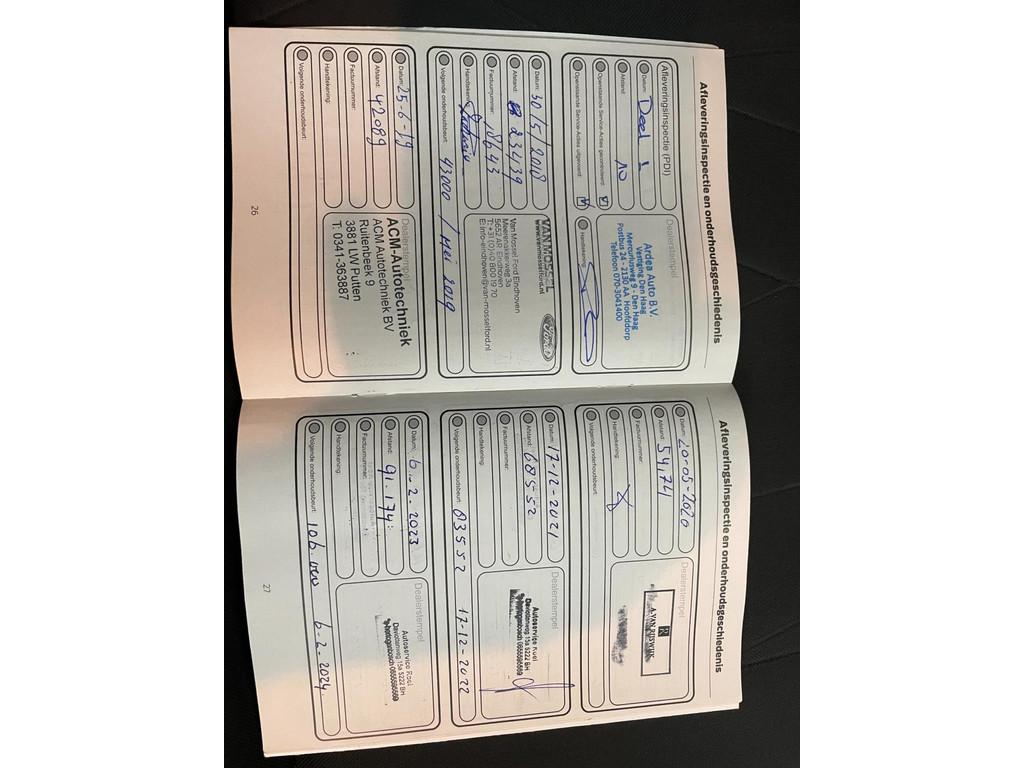 Afleveringsinspectie en onderhoudsgeschiedenis
Afleveringsinspectie (PDI)
Datum: Deel 1
Afstand: 10
Openstaande Service-Acties gecontroleerd:
Openstaande Service-Acties uitgevoerd:
Dealerstempel
Ardea Auto B.V.
Vestiging Den Haag
Mercuriusweg 9 - Den Haag
Postbus 24 - 2130 AA Hoofddorp
Telefoon 070-3041400
Handtekening:
Datum: 30/5/2018
Afstand: 23439
Factuurnummer: 18643
Handtekening:
Volgende onderhoudsbeurt: 43000 / Mei 2019
VAN MOSSEL
www.vanmosselford.nl
Ford
Van Mossel Ford Eindhoven
Meerenakkerweg 3a
5652 AR Eindhoven
T: +31 (0)40 800 19 70
E: info-eindhoven@van-mosselford.nl
Datum: 25-6-19
Afstand: 42089
Factuurnummer:
Handtekening:
Volgende onderhoudsbeurt:
Dealerstempel
ACM-Autotechniek
ACM Autotechniek BV
Ruitenbeek 9
3881 LW Putten
T. 0341-363887
26
Afleveringsinspectie en onderhoudsgeschiedenis
Datum: 20-05-2020
Afstand: 54,741
Factuurnummer:
Handtekening:
Volgende onderhoudsbeurt:
Dealerstempel
Datum: 17-12-2021
Afstand: 68552
Factuurnummer:
Handtekening:
Volgende onderhoudsbeurt: 83552 17-12-2022
Dealerstempel
Autoservice Roel
Davidtenweg 15a 5222 BH
's-hertogenbosch 0655595569
Datum: 6.2.2023
Afstand: 91.174
Factuurnummer:
Handtekening:
Volgende onderhoudsbeurt: 106.000 6-2-2024.
Dealerstempel
Autoservice Roel
Davidtenweg 15a 5222 BH
's-hertogenbosch 0655595569
27